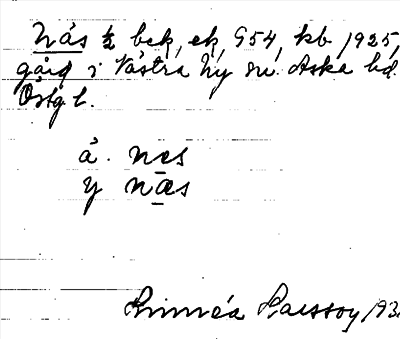 Näs ½ bek, ek, G54, kb 1925,
gård i Västra Ny sn. Aska hd.
Östg l.
å. næs
y næs
Linnéa Larsson, 193